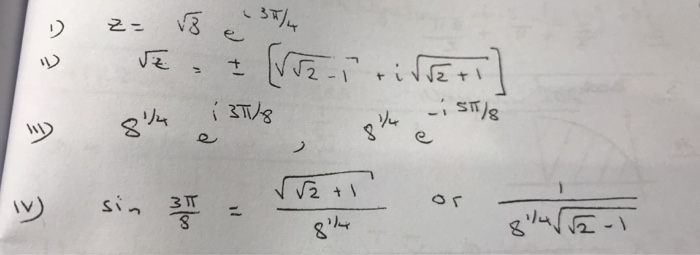 i) z = √8 e^{i 3π/4}
ii) √z = ± [√(√2 - 1) + i √(√2 + 1)]
iii) 8^{1/4} e^{i 3π/8} , 8^{1/4} e^{-i 5π/8}
iv) sin 3π/8 = √(√2 + 1) / 8^{1/4} or 1 / (8^{1/4} √(√2 - 1))